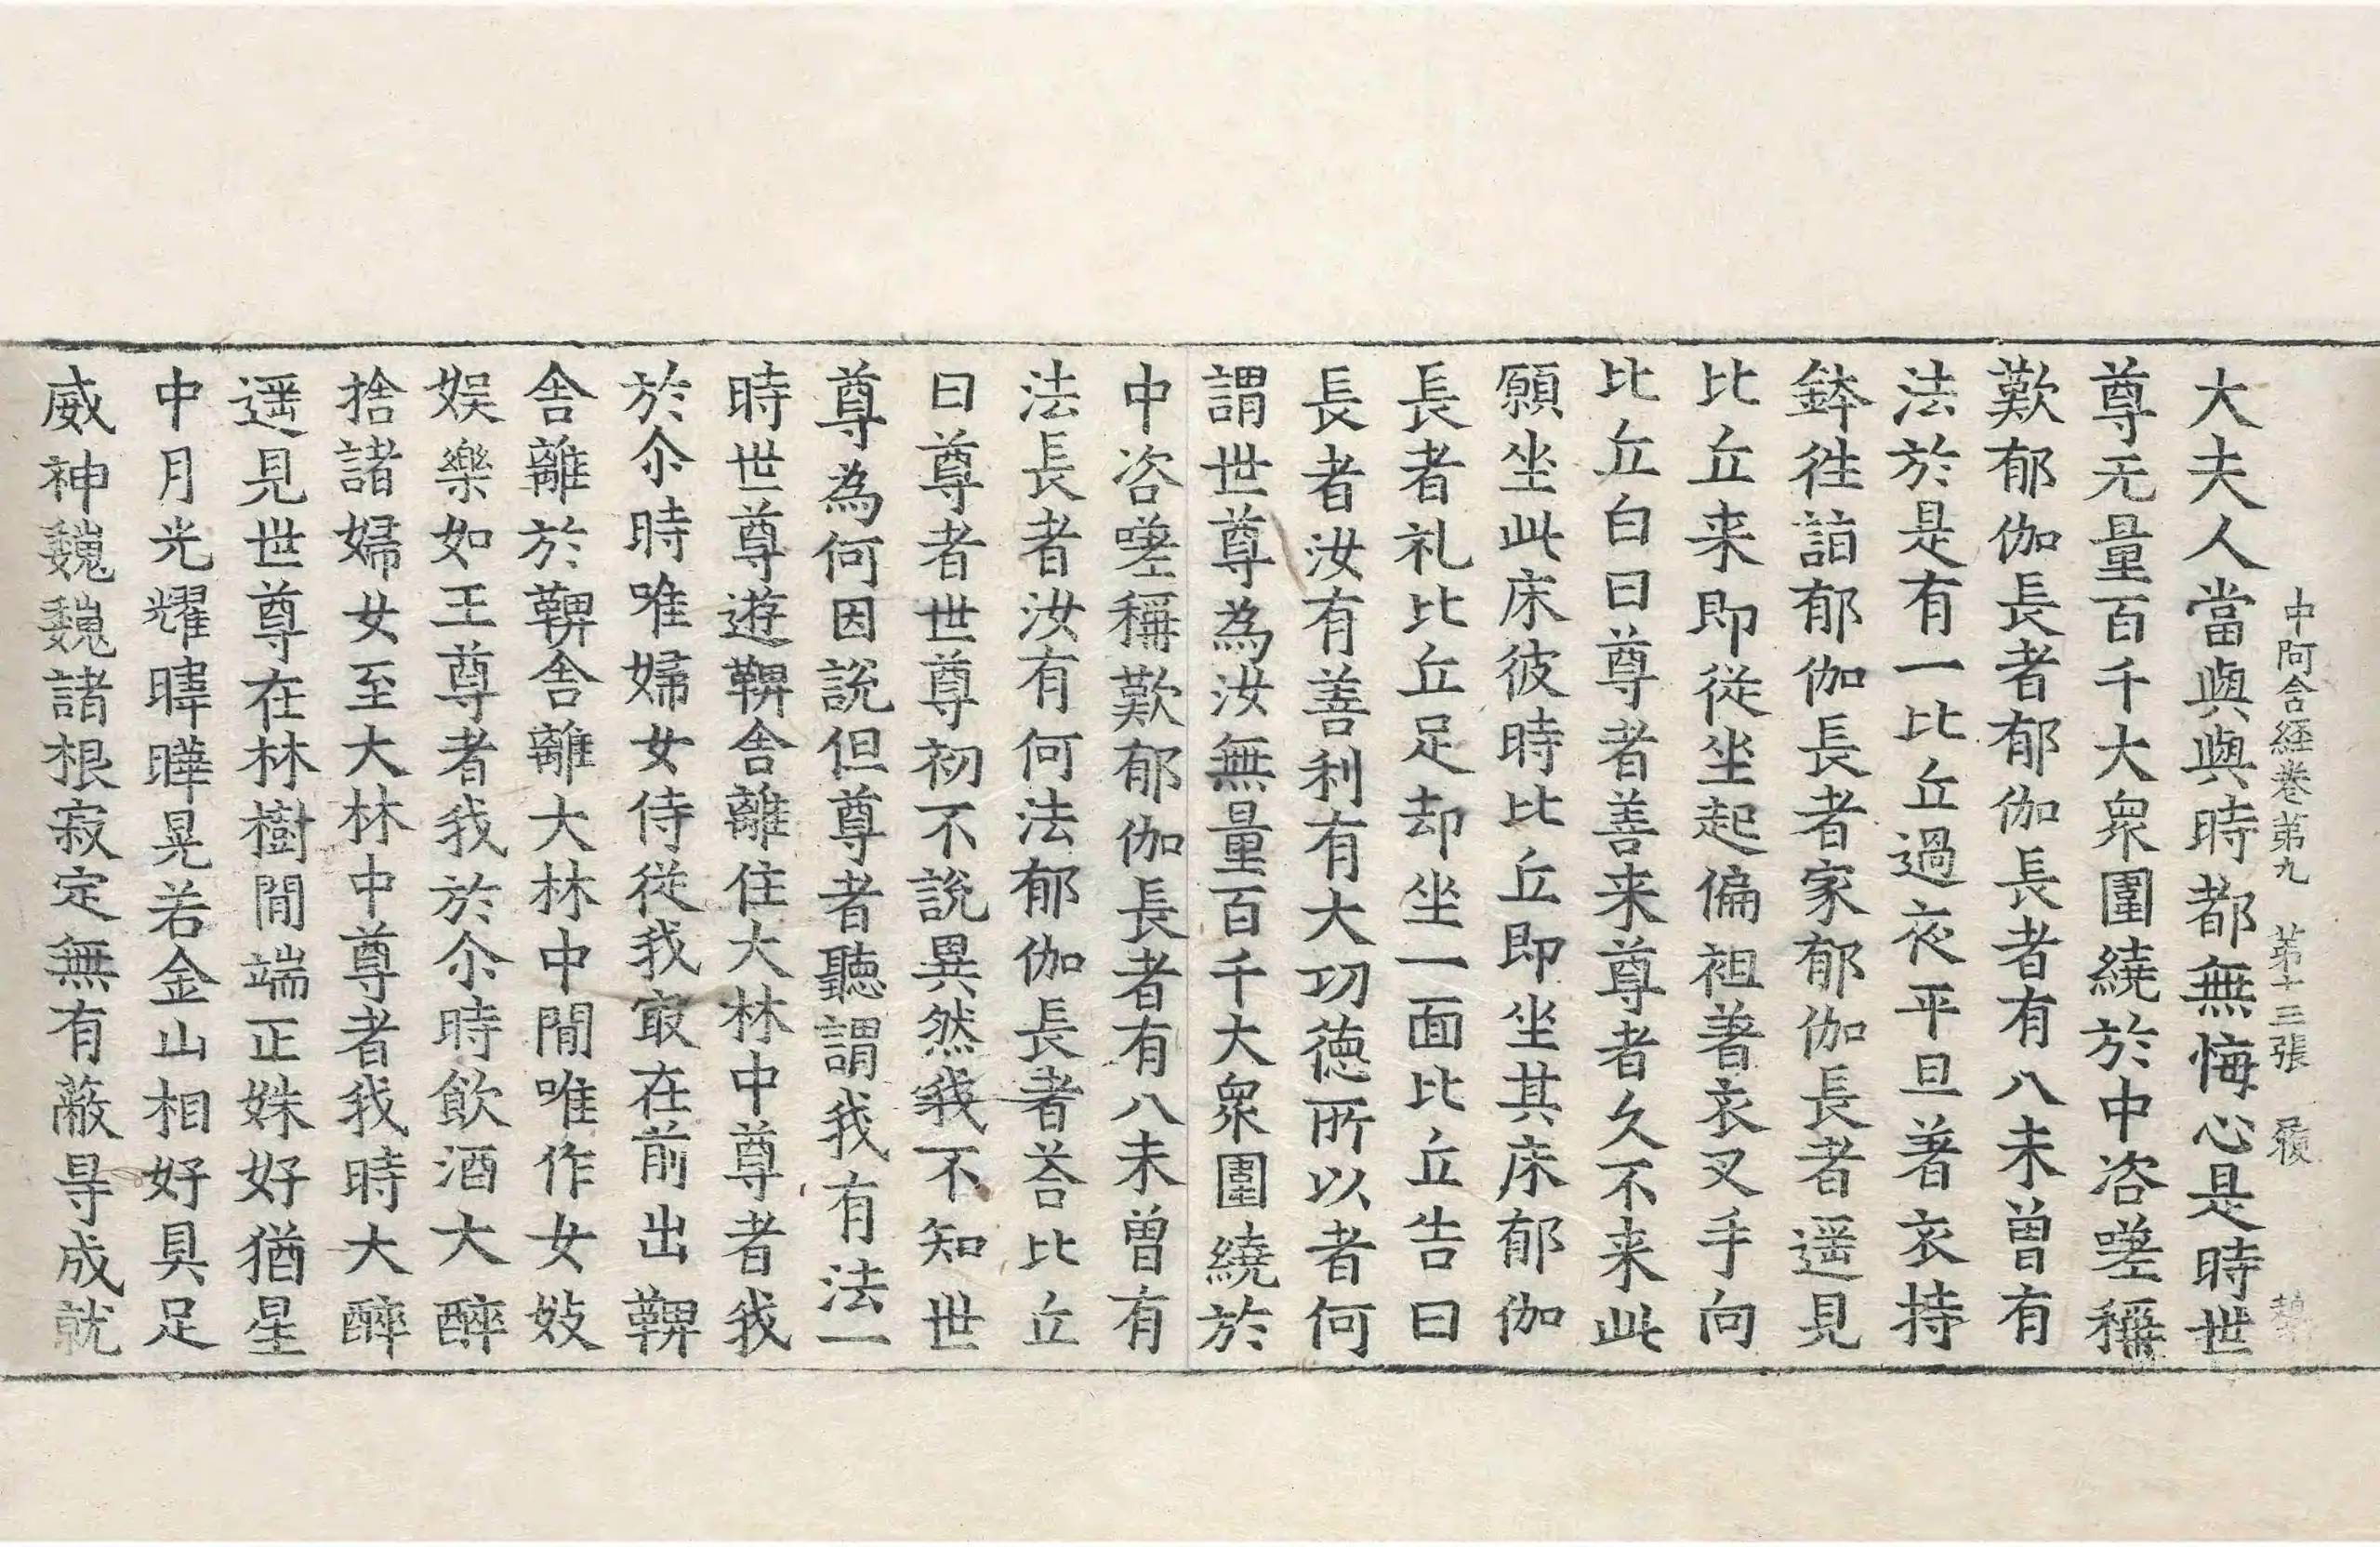 中阿含經卷第九　第十三張　履
大夫人當與與時都無悔心是時世
尊无量百千大衆圍繞於中咨嗟稱
歎郁伽長者郁伽長者有八未曾有
法於是有一比丘過夜平旦著衣持
鉢往詣郁伽長者家郁伽長者遥見
比丘来即從坐起偏袒著衣叉手向
比丘白曰尊者善来尊者久不来此
願坐此床彼時比丘即坐其床郁伽
長者礼比丘足却坐一面比丘告曰
長者汝有善利有大功德所以者何
謂世尊為汝無量百千大衆圍繞於
中咨嗟稱歎郁伽長者有八未曾有
法長者汝有何法郁伽長者荅比丘
曰尊者世尊初不說異然我不知世
尊為何因說但尊者聽謂我有法一
時世尊遊鞞舎離住大林中尊者我
於尒時唯婦女侍從我㝡在前出鞞
舎離於鞞舎離大林中間唯作女妓
娱樂如王尊者我於尒時飲酒大醉
捨諸婦女至大林中尊者我時大醉
遥見世尊在林樹間端正姝好猶星
中月光耀暐曄晃若金山相好具足
威神巍巍諸根寂定無有蔽㝵成就